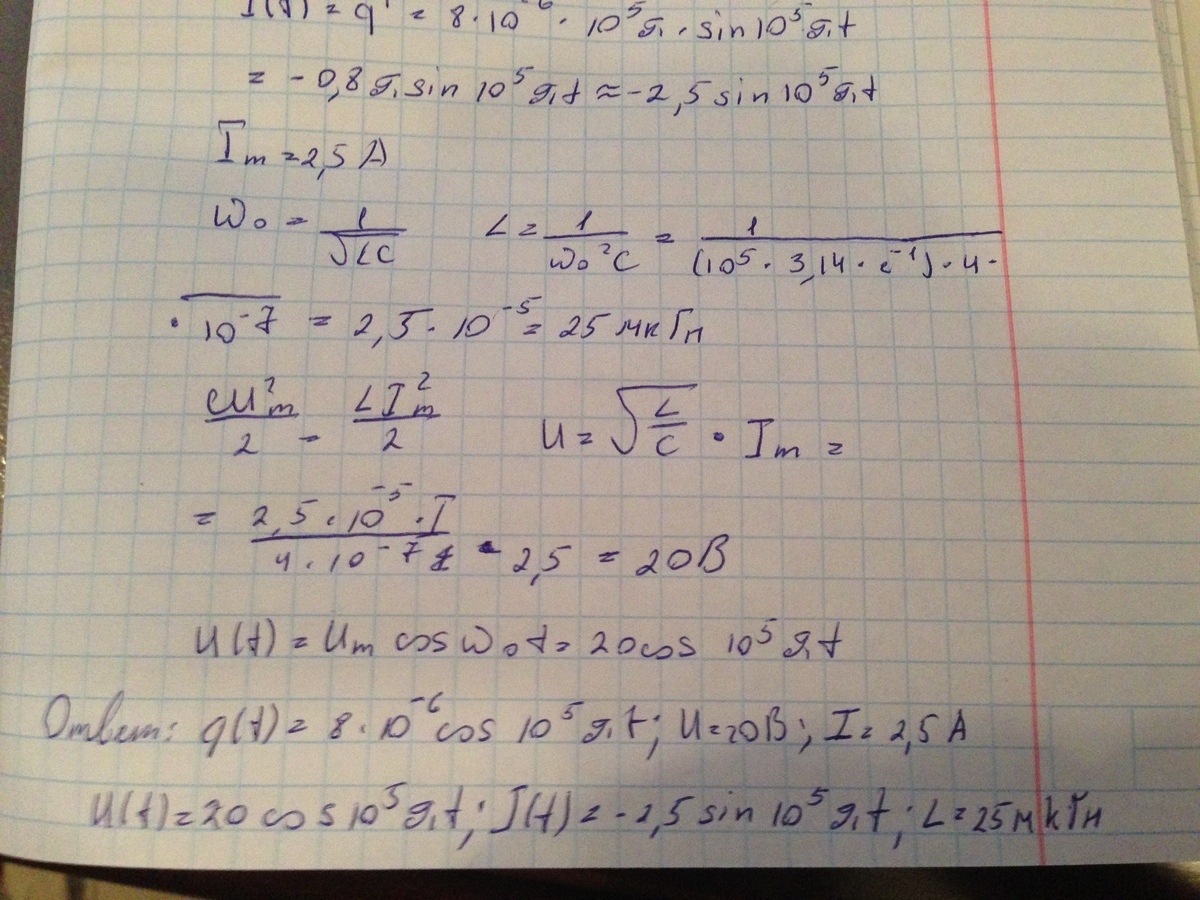 I(t) = q' = 8·10⁻⁶ · 10⁵π · sin10⁵πt
= -0,8π sin 10⁵πt ≈ -2,5 sin10⁵πt
Iₘ = 2,5 А
ω₀ = 1/√LC L = 1/ω₀²C = 1/(10⁵ · 3,14 · с⁻¹) · 4 ·
· 10⁻⁷ = 2,5 · 10⁻⁵ = 25 мкГн
CU²ₘ/2 = LI²ₘ/2 U = √L/C · Iₘ =
= 2,5 · 10⁻⁵ · 2,5 = 20В
4 · 10⁻⁷
U(t) = Uₘ cos ω₀t = 20cos 10⁵πt
Ответ: q(t) = 8 · 10⁻⁶ cos 10⁵πt; U=20В; I = 2,5 А
U(t) = 20 cos 10⁵πt; I(t) = -2,5 sin 10⁵πt; L = 25мкГн